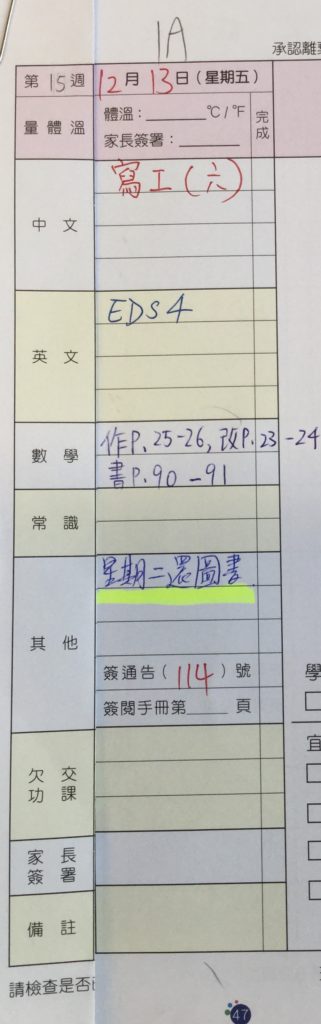 1A
承認離
第15週 12月13日(星期五)
量體溫 體溫:______°C/°F 完成
家長簽署:______
中文 寫工(六)
英文 EDS4
數學 作P.25-26,改P.23-24
書P.90-91
常識
其他 星期二還圖書.
簽通告(114)號
簽閱手冊第____頁
學
宜
欠交功課
家長簽署
備註
請檢查是否
47